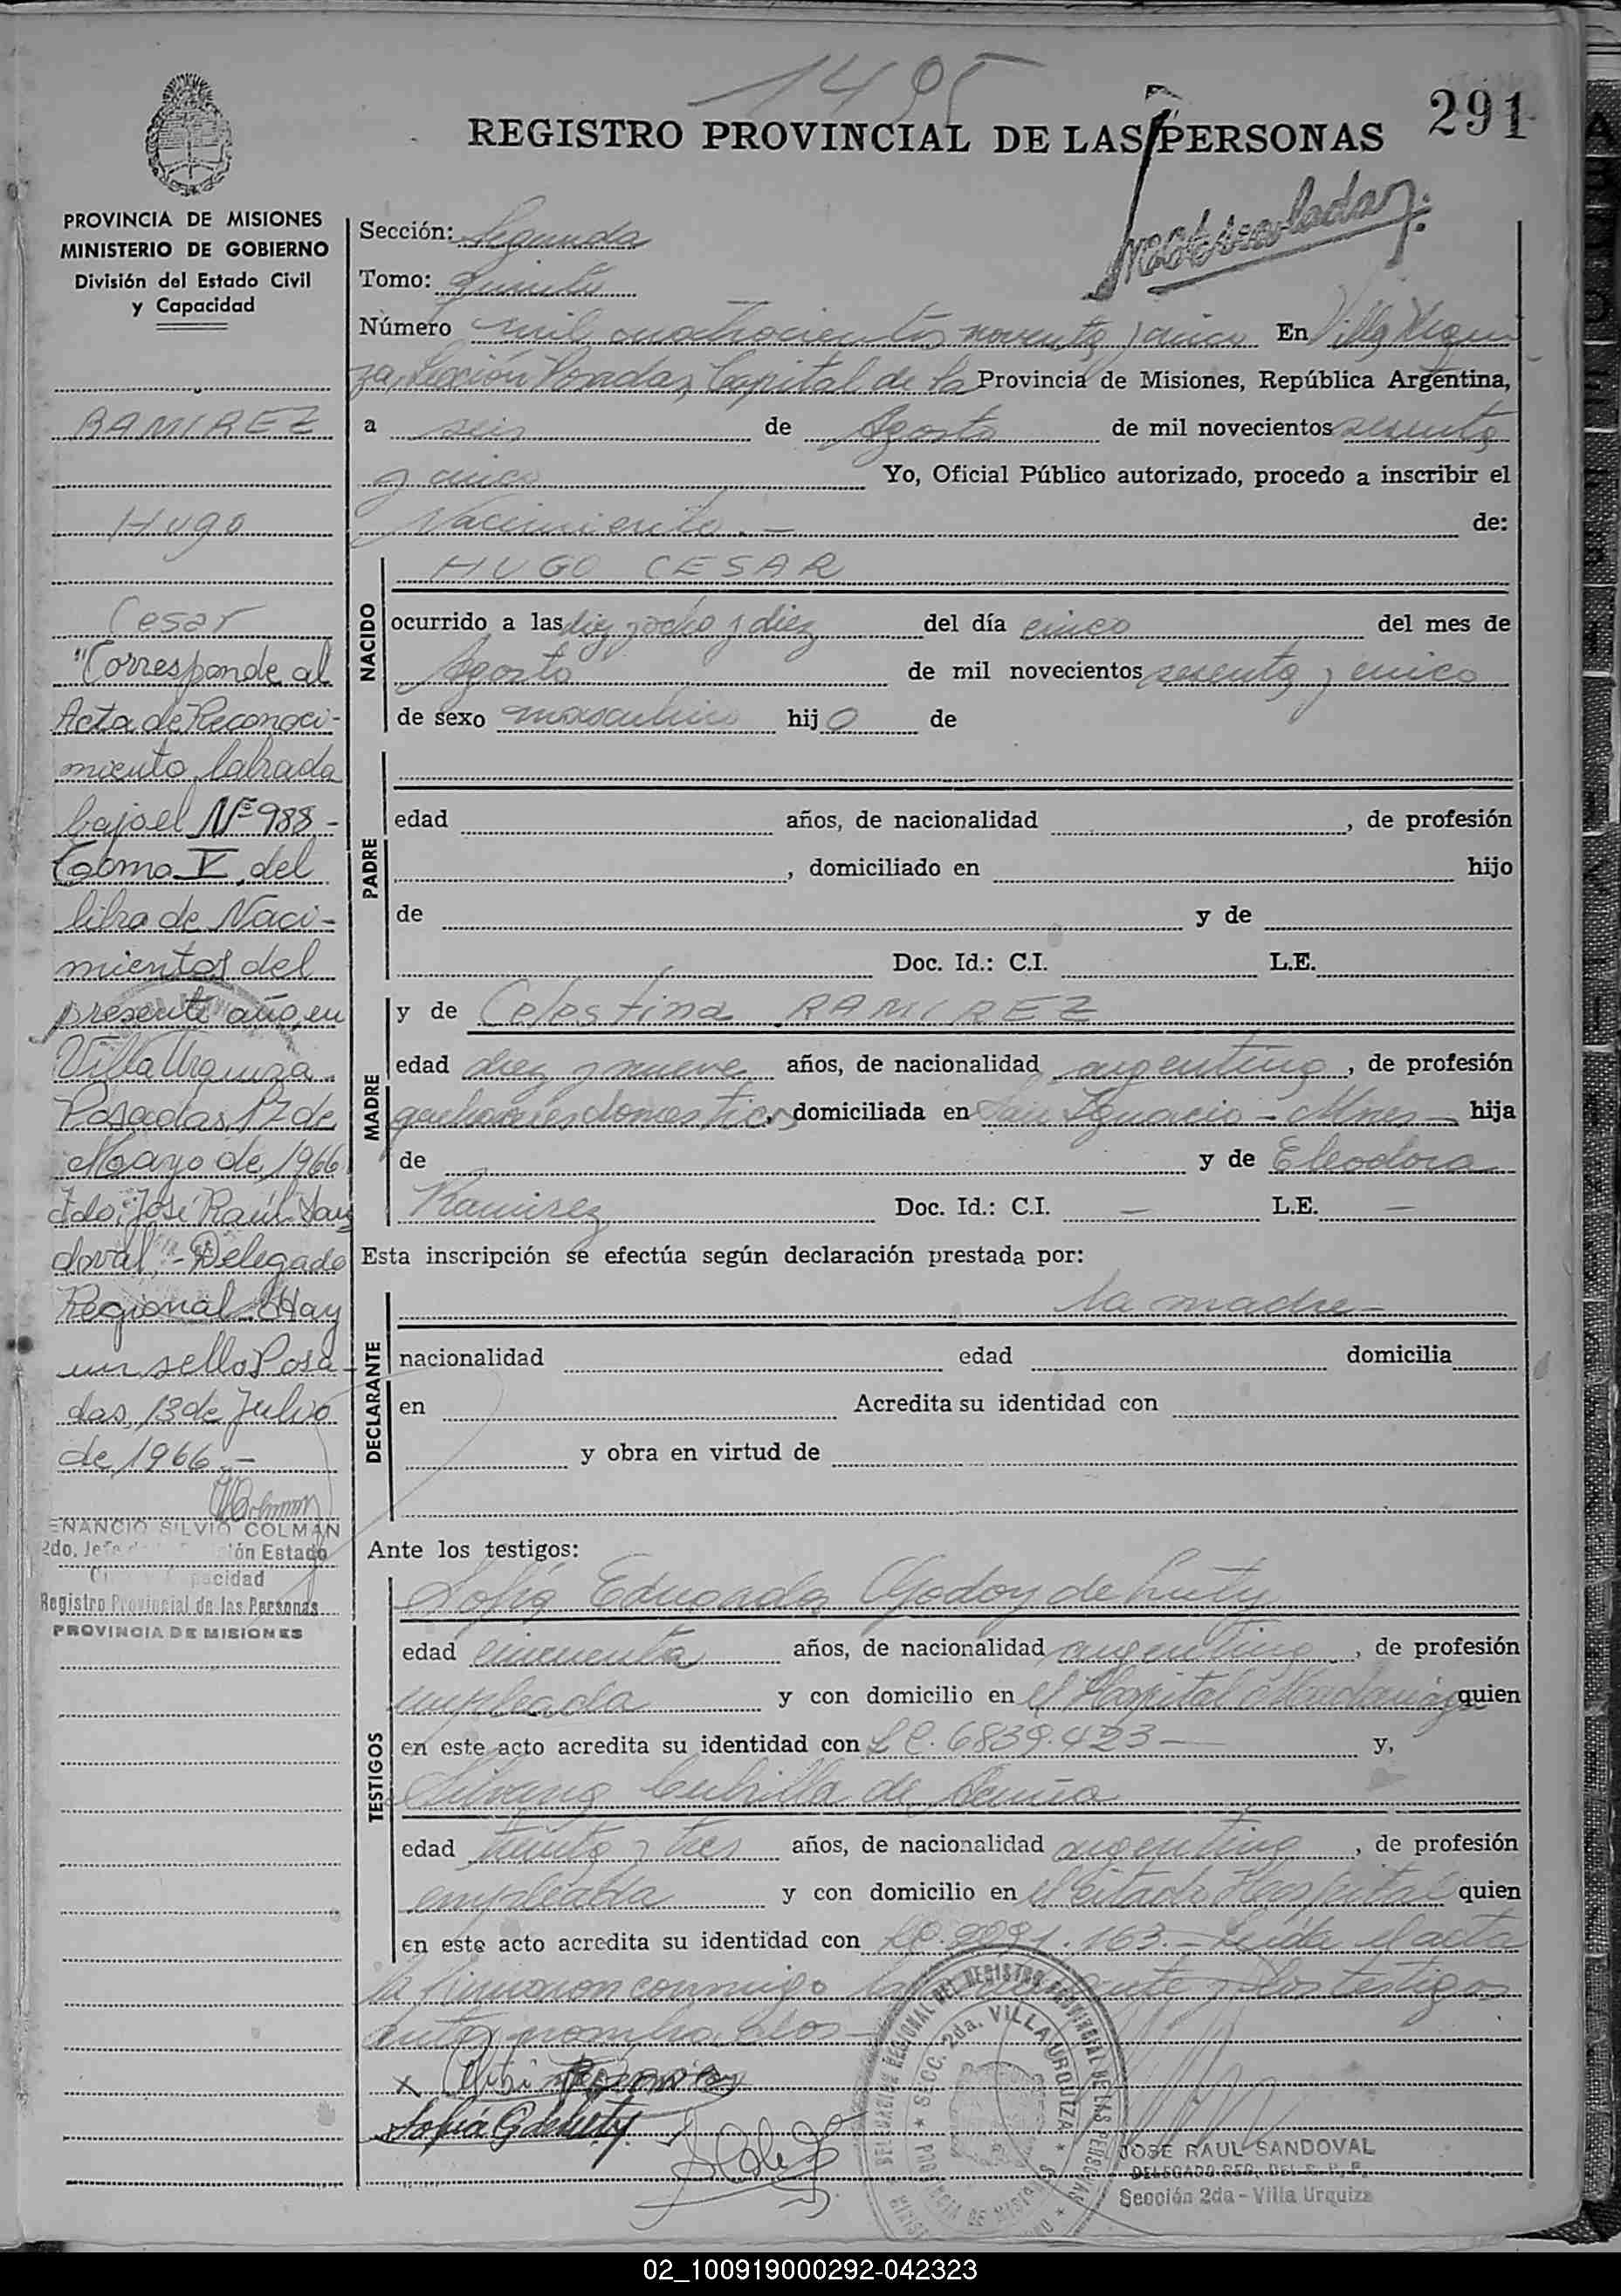 1495
291
REGISTRO PROVINCIAL DE LAS PERSONAS
PROVINCIA DE MISIONES
MINISTERIO DE GOBIERNO
División del Estado Civil
y Capacidad
RAMIREZ
Hugo
Cesar
"Corresponde al
Acta de Reconoci-
miento labrada
bajo el Nº 988-
Tomo V del
libro de Naci-
mientos del
presente año, en
Villa Urquiza
Posadas 17 de
Mayo de 1966
Fdo: José Raúl San
doval - Delegado
Regional Hay
un sello Posa-
das, 13 de Julio
de 1966.-
ENANCIO SILVIO COLMAN
2do. Jefe ión Estado
pacidad
Registro Provincial de las Personas
PROVINCIA DE MISIONES
Sección: Segunda
Tomo: Quinto
Número mil cuatrocientos noventa y cinco En Villa Urqui
za, Sección Posadas, Capital de la Provincia de Misiones, República Argentina,
a seis de Agosto de mil novecientos sesenta
y cinco Yo, Oficial Público autorizado, procedo a inscribir el
Nacimiento.- de:
NACIDO
HUGO CESAR
ocurrido a las diez y ocho y diez del día cinco del mes de
Agosto de mil novecientos sesenta y cinco
de sexo masculino hijo de
PADRE
edad años, de nacionalidad , de profesión
, domiciliado en hijo
de y de
Doc. Id.: C.I. L.E.
MADRE
y de Celestina RAMIREZ
edad diez y nueve años, de nacionalidad argentina, de profesión
quehaceres domesticos domiciliada en San Ignacio - Mnes - hija
de y de Eleodora
Ramirez Doc. Id.: C.I. - L.E. -
Esta inscripción se efectúa según declaración prestada por:
DECLARANTE
la madre-
nacionalidad edad domicilia
en Acredita su identidad con
y obra en virtud de
Ante los testigos:
TESTIGOS
Sofia Eduarda Godoy de
edad cincuenta años, de nacionalidad argentina, de profesión
empleada y con domicilio en el Hospital Madariaga quien
en este acto acredita su identidad con L.C. 6839.423 - y,
Silvana de
edad treinta y tres años, de nacionalidad argentina, de profesión
empleada y con domicilio en el citado Hospital quien
en este acto acredita su identidad con LC. .163.- Leída el acta
la firmaron conmigo la y los testigos
antes nombrados
DELEGACION REGIONAL DEL REGISTRO PROVINCIAL DE LAS PERSONAS
SECC. 2da. VILLA URQUIZA
JOSE RAUL SANDOVAL
DELEGADO REG. DEL R. P. P.
Sección 2da - Villa Urquiza
02_100919000292-042323